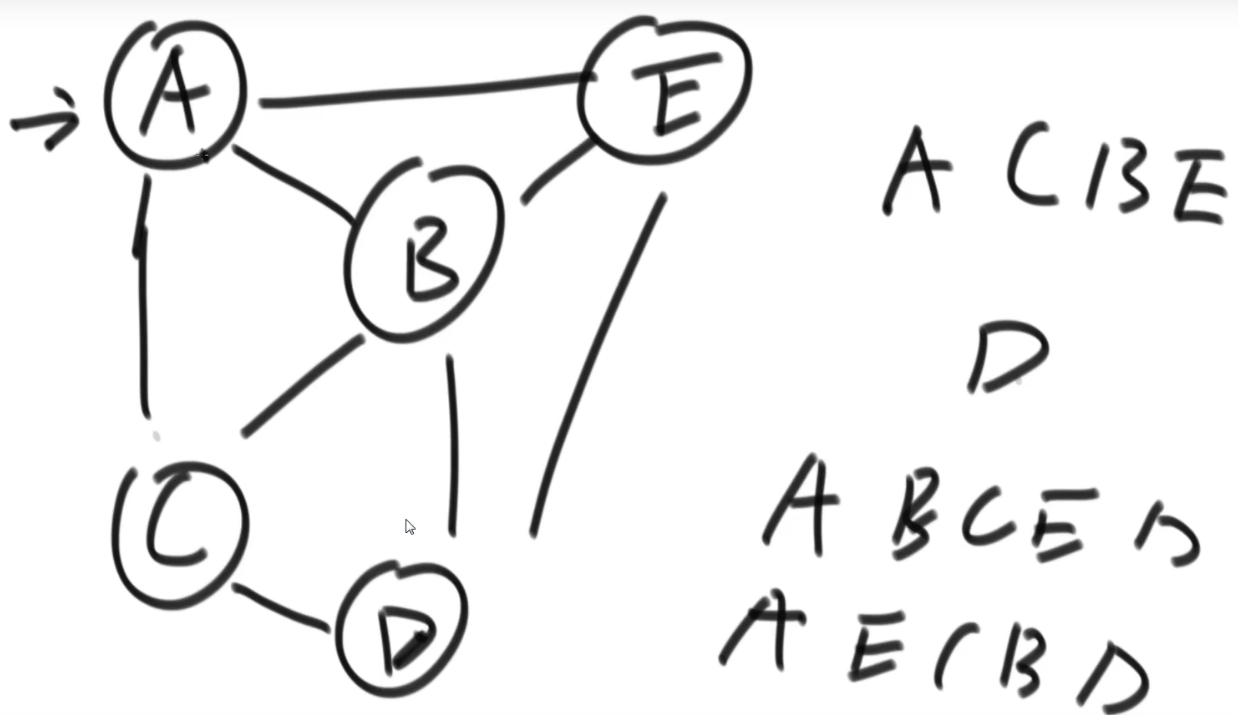 A
E
B
C
D
A C B E
D
A B C E D
A E C B D